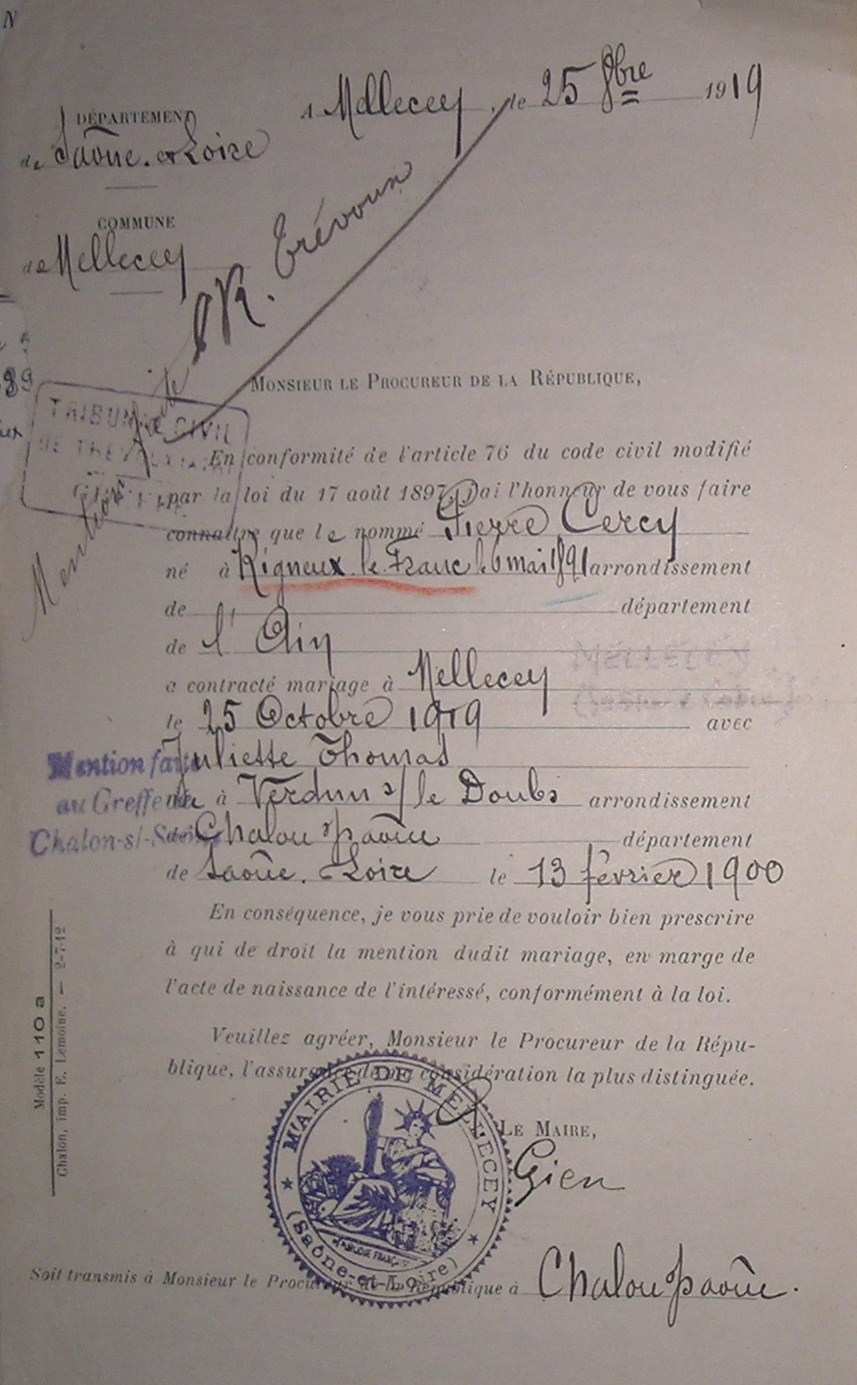 N
DÉPARTEMENT
de Saône-et-Loire
A Mellecey, le 25 8bre 1919
COMMUNE
de Mellecey
MONSIEUR LE PROCUREUR DE LA RÉPUBLIQUE,
TRIBUNAL CIVIL
En conformité de l'article 76 du code civil modifié
par la loi du 17 août 1897, j'ai l'honneur de vous faire
connaître que le nommé Pierre Cercy
né à Rigneux le Franc le 6 mai 1891 arrondissement
de département
de l'Ain
a contracté mariage à Mellecey
MELLECEY
le 25 Octobre 1919 avec
Juliette Thomas
Mention faite
au Greffe de
Chalon-s/-Saône
née à Verdun s/ le Doubs arrondissement
de Chalon s/ Saône département
de Saône-Loire le 13 février 1900
En conséquence, je vous prie de vouloir bien prescrire
à qui de droit la mention dudit mariage, en marge de
l'acte de naissance de l'intéressé, conformément à la loi.
Veuillez agréer, Monsieur le Procureur de la Répu-
blique, l'assurance de ma considération la plus distinguée.
LE MAIRE,
MAIRIE DE MELLECEY
(Saône-et-Loire)
Soit transmis à Monsieur le Procureur de la République à Chalon s/ Saône.
Modèle 110 a
Chalon, imp. E. Lemoine. — 2-7-12